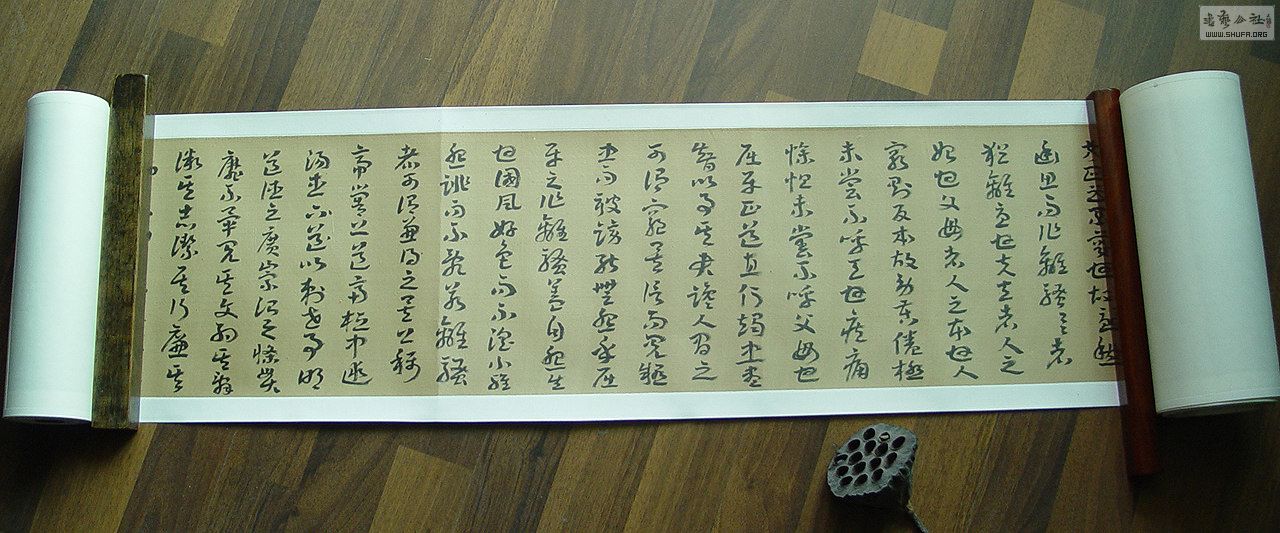 方正之不容也故
幽思而作離騷〻者
猶離憂也夫天者人之
始也父母者人之本也人
窮則反本故勞苦倦極
未嘗不呼天也疾痛
慘怛未嘗不呼父母也
屈平正道直行竭忠盡
智以事其君讒人間之
可謂窮矣信而見疑
忠而被謗能無怨乎屈
平之作離騷蓋自怨生
也國風好色而不淫小雅
怨誹而不亂若離騷
者可謂兼得之矣上稱
帝嚳下道齊桓中述
湯武以刺世事明
道德之廣崇治之條貫
靡不畢見其文約其辭
微其志潔其行廉其
書藝公社
WWW.SHUFA.ORG